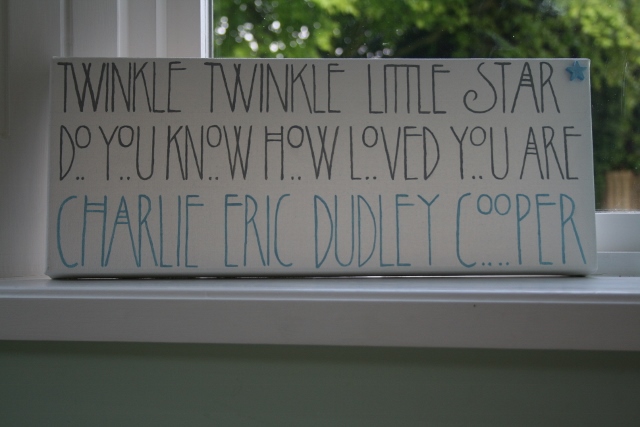 TWINKLE TWINKLE LITTLE STAR
DO YOU KNOW HOW LOVED YOU ARE
CHARLIE ERIC DUDLEY COOPER